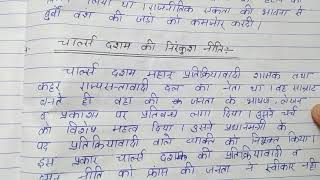 लिया था। राजनीतिक एकता की भावना से
बुर्बो वंश की जड़ों को कमजोर करदी।
चार्ल्स दशम की निरंकुश नीति:-
चार्ल्स दशम महान प्रतिक्रियावादी शासक तथा
कट्टर राजसत्तावादी दल का नेता था। वह सम्राट
बनते ही वहां की जनता के भाषण, लेखन
व प्रकाशन पर प्रतिबन्ध लगा दिया। उसने चर्च
को विशेष महत्व दिया। उसने प्रधानमन्त्री के
पद पर प्रतिक्रियावादी वाले व्यक्ति को नियुक्त किया।
इस प्रकार चार्ल्स दशम की प्रतिक्रियावादी व
नीति को फ्रांस की जनता ने स्वीकार नहीं